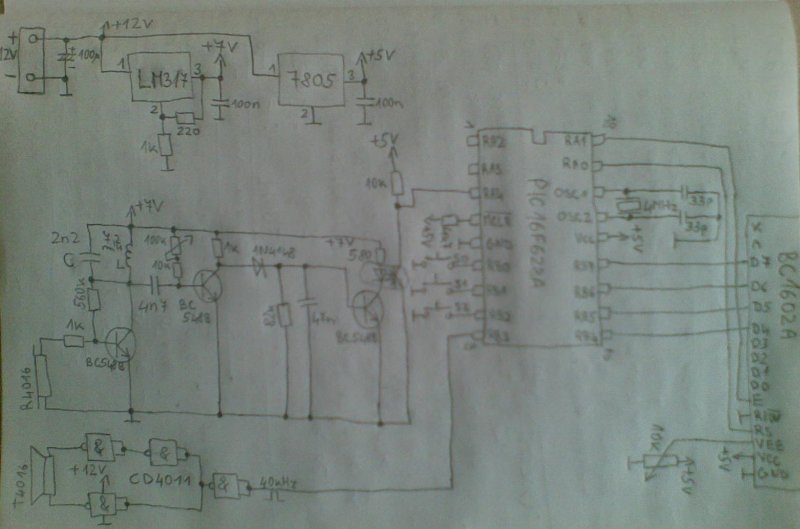 +12V
+
12V
-
100µ
1
LM317
3
+7V
2
220
100n
1K
1
7805
3
+5V
2
100n
+5V
10K
+7V
2n2
C
L
560K
4n7
100K
10K
1K
1N4148
BC
548B
+7V
580
BC548B
47n
1K
BC548B
R4016
T4016
&
&
+12V
&
CD4011
&
40kHz
PIC16F628A
RA2
RA3
RA4
MCLR
GND
RB0
RB1
RB2
RB3
RA1
RA0
OSC1
OSC2
VCC
RB7
RB6
RB5
RB4
4MHz
33p
33p
+5V
+5V
S1
BC1602A
K
D7
D6
D5
D4
E
RS
VEE
VCC
10K
+5V
+5V